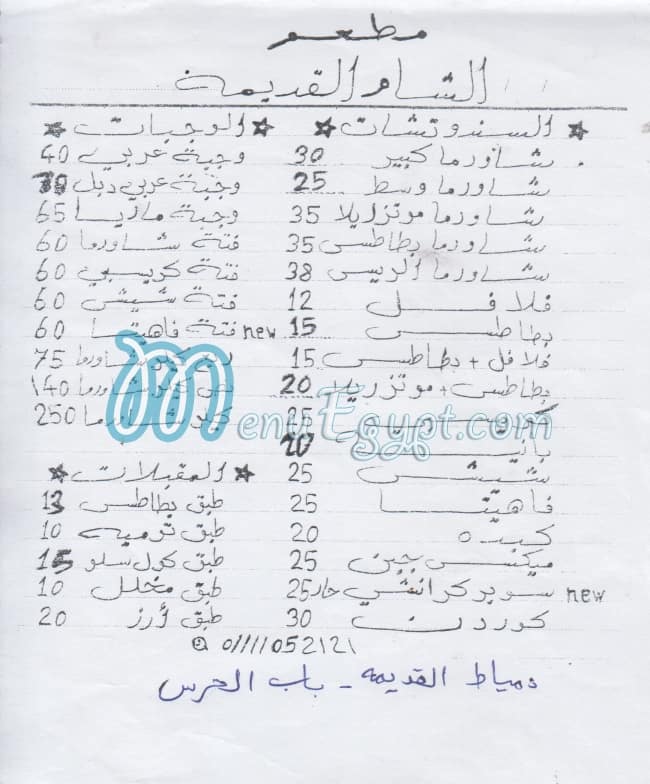 مطعم
الشام القديمة
★ السندوتشات ★
شاورما كبير 30
شاورما وسط 25
شاورما موتزاريلا 35
شاورما بطاطس 35
شاورما الريس 38
فلافل 12
بطاطس 15
فلافل + بطاطس 15
بطاطس + موتزريلا 20
25
بانيه 20
شيش 25
فاهيتا 25
كبده 20
ميكس جبن 25
new سوبر كرانشي حار 25
كوردن 30
★ الوجبات ★
وجبة عربي 40
وجبة عربي دبل
وجبة ماريا 65
فتة شاورما 60
فتة كريسبي 60
فتة شيش 60
new فتة فاهيتا 60
75
140
كيلو شاورما 250
★ المقبلات ★
طبق بطاطس 13
طبق توميه 10
طبق كول سلو 15
طبق مخلل 10
طبق أرز 20
01111052121
دمياط القديمه - باب الحرس
MenuEgypt.com